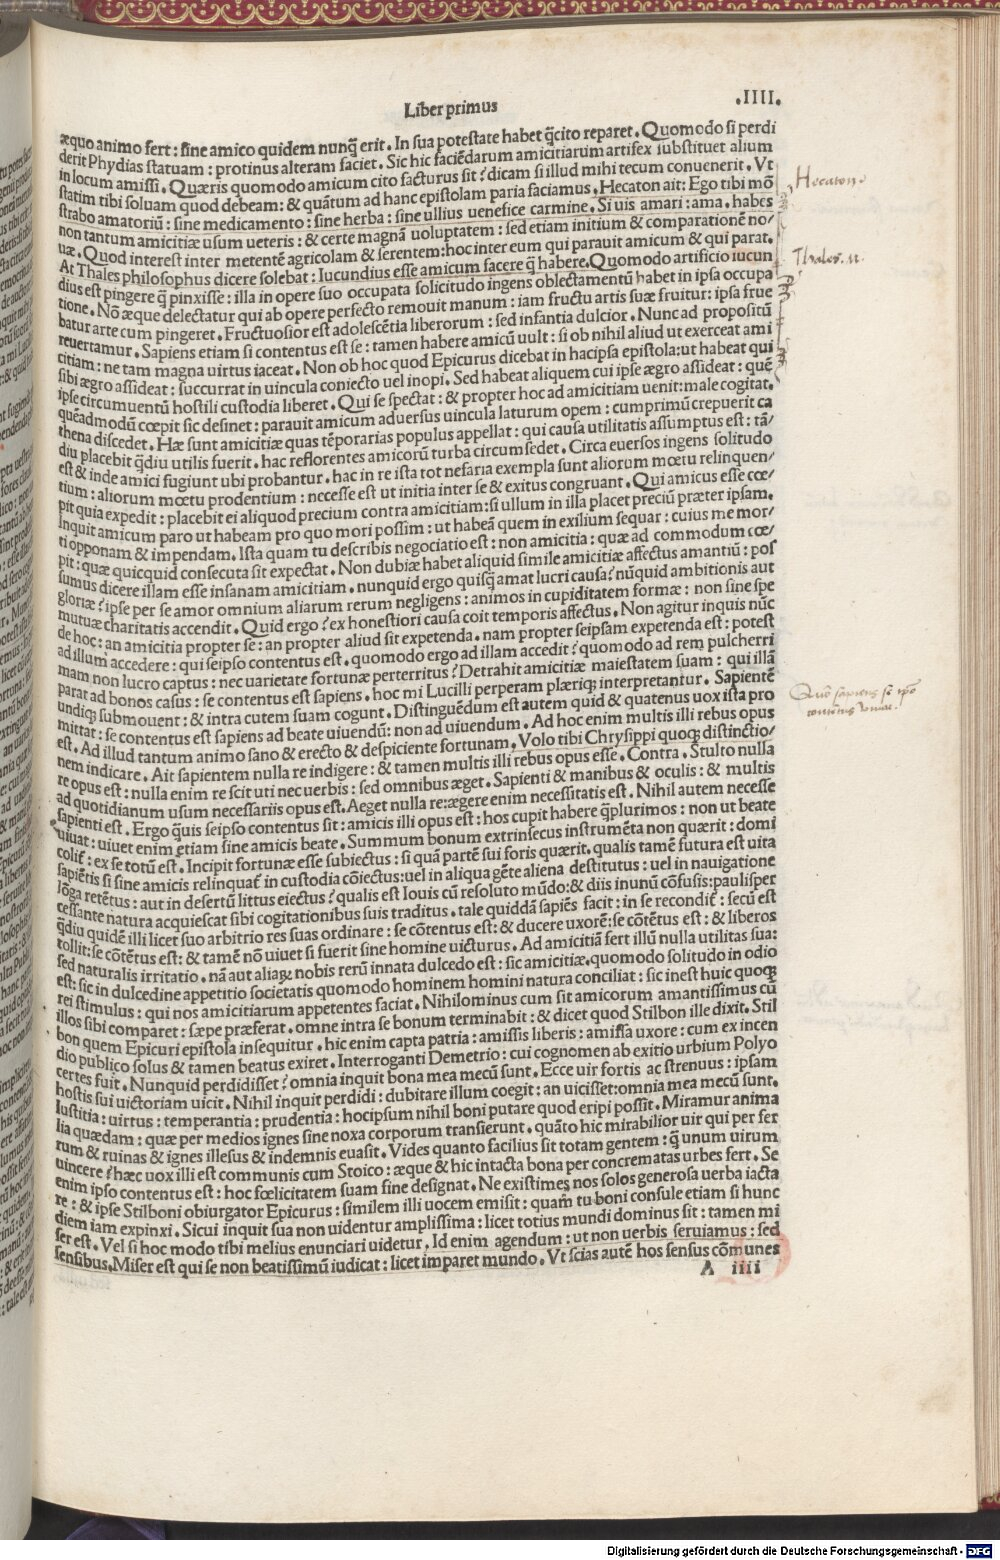 Liber primus
.IIII.
æquo animo fert : sine amico quidem nunq̃ erit . In sua potestate habet q̃cito reparet . Quomodo si perdi
derit Phydias statuam : protinus alteram faciet . Sic hic faciẽdarum amicitiarum artifex substituet alium
in locum amissi . Quæris quomodo amicum cito facturus sit ? dicam si illud mihi tecum conuenerit . Vt
statim tibi soluam quod debeam : & quãtum ad hanc epistolam paria faciamus . Hecaton ait : Ego tibi mõ
strabo amatoriũ : sine medicamento : sine herba : sine ullius uenefice carmine . Si uis amari : ama . habes
non tantum amicitiæ usum ueteris : & certe magnã uoluptatem : sed etiam initium & comparationẽ no/
uæ . Quod interest inter metentẽ agricolam & serentem : hoc inter eum qui parauit amicum & qui parat .
At Thales philosophus dicere solebat : Iucundius esse amicum facere q̃ habere . Quomodo artificio iucun
dius est pingere q̃ pinxisse : illa in opere suo occupata solicitudo ingens oblectamentũ habet in ipsa occupa
tione . Nõ æque delectatur qui ab opere perfecto remouit manum : iam fructu artis suæ fruitur : ipsa frue
batur arte cum pingeret . Fructuosior est adolescẽtia liberorum : sed infantia dulcior . Nunc ad propositũ
reuertamur . Sapiens etiam si contentus est se : tamen habere amicũ uult : si ob nihil aliud ut exerceat ami
citiam : ne tam magna uirtus iaceat . Non ob hoc quod Epicurus dicebat in hacipsa epistola : ut habeat qui
sibi ægro assideat : succurrat in uincula coniecto uel inopi . Sed habeat aliquem cui ipse ægro assideat : quẽ
ipse circumuentũ hostili custodia liberet . Qui se spectat : & propter hoc ad amicitiam uenit : male cogitat .
quẽadmodũ cœpit sic desinet : parauit amicum aduersus uincula laturum opem : cumprimũ crepuerit ca
thena discedet . Hæ sunt amicitiæ quas tẽporarias populus appellat : qui causa utilitatis assumptus est : tã/
diu placebit q̃diu utilis fuerit . hac reflorentes amicorũ turba circumsedet . Circa euersos ingens solitudo
est & inde amici fugiunt ubi probantur . hac in re ista tot nefaria exempla sunt aliorum mœtu relinquen/
tium : aliorum mœtu prodentium : necesse est ut initia inter se & exitus congruant . Qui amicus esse cœ/
pit quia expedit : placebit ei aliquod precium contra amicitiam : si ullum in illa placet preciũ præter ipsam .
Inquit amicum paro ut habeam pro quo mori possim : ut habeã quem in exilium sequar : cuius me mor/
ti opponam & impendam . Ista quam tu describis negociatio est : non amicitia : quæ ad commodum cœ/
pit : quæ quicquid consecuta sit expectat . Non dubiæ habet aliquid simile amicitiæ affectus amantiũ : pos
sumus dicere illam esse insanam amicitiam . nunquid ergo quisq̃ amat lucri causa ? nũquid ambitionis aut
gloriæ ? ipse per se amor omnium aliarum rerum negligens : animos in cupiditatem formæ : non sine spe
mutuæ charitatis accendit . Quid ergo ? ex honestiori causa coit temporis affectus . Non agitur inquis nũc
de hoc : an amicitia propter se : an propter aliud sit expetenda . nam propter seipsam expetenda est : potest
ad illum accedere : qui seipso contentus est . quomodo ergo ad illam accedit ? quomodo ad rem pulcherri
mam non lucro captus : nec uarietate fortunæ perterritus ? Detrahit amicitiæ maiestatem suam : qui illã
parat ad bonos casus : se contentus est sapiens . hoc mi Lucilli perperam plæriqʒ interpretantur . Sapientẽ
undiqʒ submouent : & intra cutem suam cogunt . Distinguẽdum est autem quid & quatenus uox ista pro
mittat : se contentus est sapiens ad beate uiuendũ : non ad uiuendum . Ad hoc enim multis illi rebus opus
est . Ad illud tantum animo sano & erecto & despiciente fortunam . Volo tibi Chrysippi quoqʒ distinctio/
nem indicare . Ait sapientem nulla re indigere : & tamen multis illi rebus opus esse . Contra . Stulto nulla
re opus est : nulla enim re scit uti nec uerbis : sed omnibus æget . Sapienti & manibus & oculis : & multis
ad quotidianum usum necessariis opus est . Aeget nulla re : ægere enim necessitatis est . Nihil autem necesse
sapienti est . Ergo q̃uis seipso contentus sit : amicis illi opus est : hos cupit habere q̃plurimos : non ut beate
uiuat : uiuet enim etiam sine amicis beate . Summum bonum extrinsecus instrumẽta non quærit : domi
colit̃ : ex se totũ est . Incipit fortunæ esse subiectus : si quã partẽ sui foris quærit . qualis tamẽ futura est uita
sapiẽtis si sine amicis relinquat̃ in custodia cõiectus : uel in aliqua gẽte aliena destitutus : uel in nauigatione
lõga retẽtus : aut in desertũ littus eiectus ? qualis est Iouis cũ resoluto mũdo : & diis inunũ cõfusis : paulisper
cessante natura acquiescat sibi cogitationibus suis traditus . tale quiddã sapiẽs facit : in se recondit̃ : secũ est
q̃diu quidẽ illi licet suo arbitrio res suas ordinare : se cõtentus est : & ducere uxorẽ : se cõtẽtus est : & liberos
tollit : se cõtẽtus est : & tamẽ nõ uiuet si fuerit sine homine uicturus . Ad amicitiã fert illũ nulla utilitas sua :
sed naturalis irritatio . nã aut aliaqʒ nobis rerũ innata dulcedo est : sic amicitiæ . quomodo solitudo in odio
est : sic in dulcedine appetitio societatis quomodo hominem homini natura conciliat : sic inest huic quoqʒ
rei stimulus : qui nos amicitiarum appetentes faciat . Nihilominus cum sit amicorum amantissimus cũ
illos sibi comparet : sæpe præferat . omne intra se bonum terminabit : & dicet quod Stilbon ille dixit . Stil
bon quem Epicuri epistola insequitur . hic enim capta patria : amissis liberis : amissa uxore : cum ex incen
dio publico solus & tamen beatus exiret . Interroganti Demetrio : cui cognomen ab exitio urbium Polyo
certes fuit . Nunquid perdidisset ? omnia inquit bona mea mecũ sunt . Ecce uir fortis ac strenuus : ipsam
hostis sui uictoriam uicit . Nihil inquit perdidi : dubitare illum coegit : an uicisset : omnia mea mecũ sunt .
Iustitia : uirtus : temperantia : prudentia : hocipsum nihil boni putare quod eripi possit . Miramur anima
lia quædam : quæ per medios ignes sine noxa corporum transierunt . quãto hic mirabilior uir qui per fer
rum & ruinas & ignes illesus & indemnis euasit . Vides quanto facilius sit totam gentem : q̃ unum uirum
uincere ? hæc uox illi est communis cum Stoico : æque & hic intacta bona per concrematas urbes fert . Se
enim ipso contentus est : hoc fœlicitatem suam fine designat . Ne existimes nos solos generosa uerba iacta
re : & ipse Stilboni obiurgator Epicurus : similem illi uocem emisit : quam tu boni consule etiam si hunc
diem iam expinxi . Sicui inquit sua non uidentur amplissima : licet totius mundi dominus sit : tamen mi
ser est . Vel si hoc modo tibi melius enunciari uidetur . Id enim agendum : ut non uerbis seruiamus : sed
sensibus . Miser est qui se non beatissimũ iudicat : licet imparet mundo . Vt scias autẽ hos sensus cõmunes
A iiii
Hecaton
Thales
Quõ sapiens se ipso
contentus uiuat .
Digitalisierung gefördert durch die Deutsche Forschungsgemeinschaft - DFG